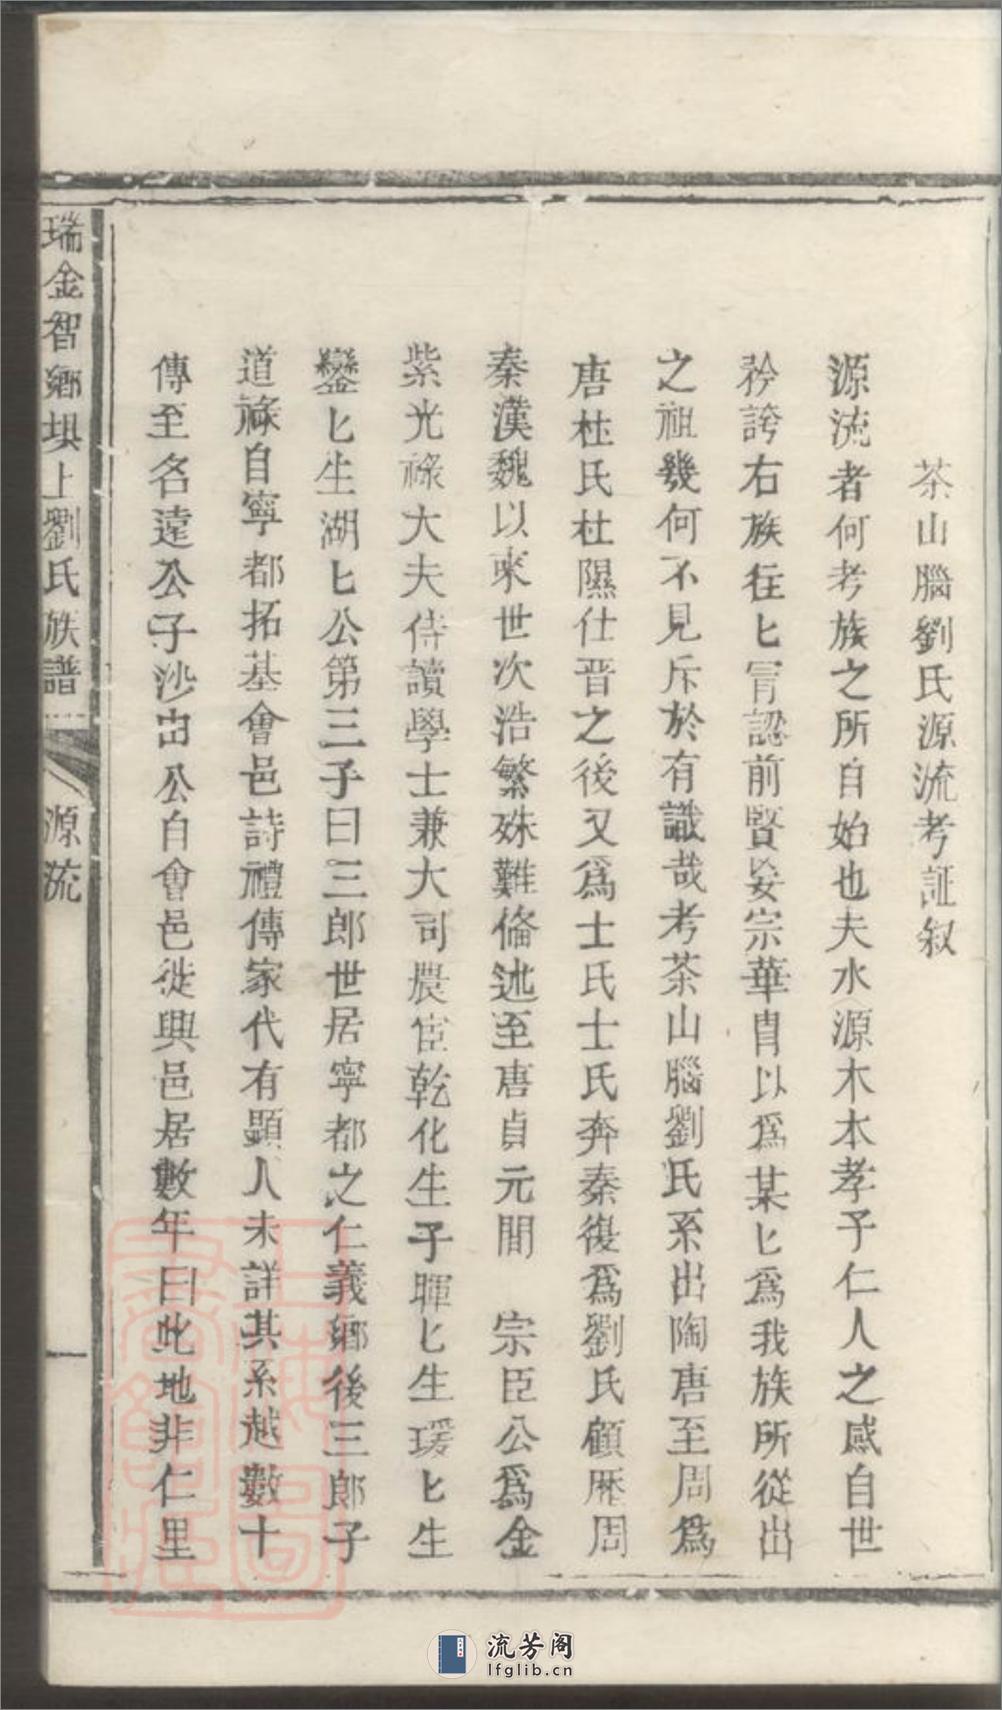 茶山腦劉氏源流考証叙
源流者何考族之所自始也夫水源木本孝子仁人之感自世
矜誇右族往匕冐認前賢妄宗華胄以爲某匕爲我族所從出
之祖幾何不見斥於有識哉考茶山腦劉氏系出陶唐至周爲
唐杜氏杜隰仕晋之後又爲士氏士氏奔秦復爲劉氏顧歷周
秦漢魏以來世次浩繁殊難俻述至唐貞元間　宗臣公爲金
紫光祿大夫侍讀學士兼大司農宦乾化生子暉匕生瑗匕生
鑾匕生湖匕公第三子曰三郎世居寧都之仁義鄉後三郎子
道祿自寧都拓基會邑詩禮傳家代有顯人未詳其系越數十
傳至名遠公子沙公自會邑徙興邑居數年曰此地非仁里
瑞金智鄉垻上劉氏族譜　源流　一
上海圖書館藏
流芳阁
lfglib.cn